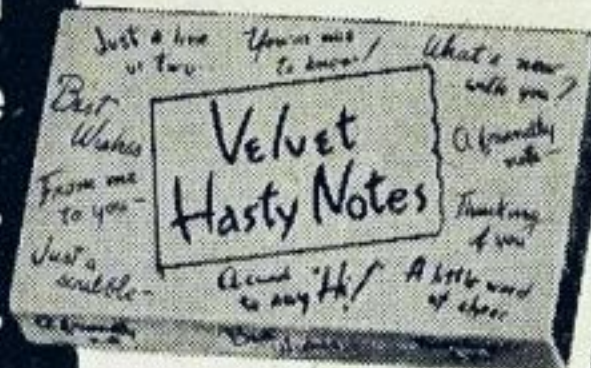 Just a line
or two
You're nice
to know!
What's new
with you?
Best
Wishes
Velvet
Hasty Notes
A friendly
note-
From me
to you-
Thinking
of you
Just a
scribble-
A card
to say "Hi!"
A little word
of cheer